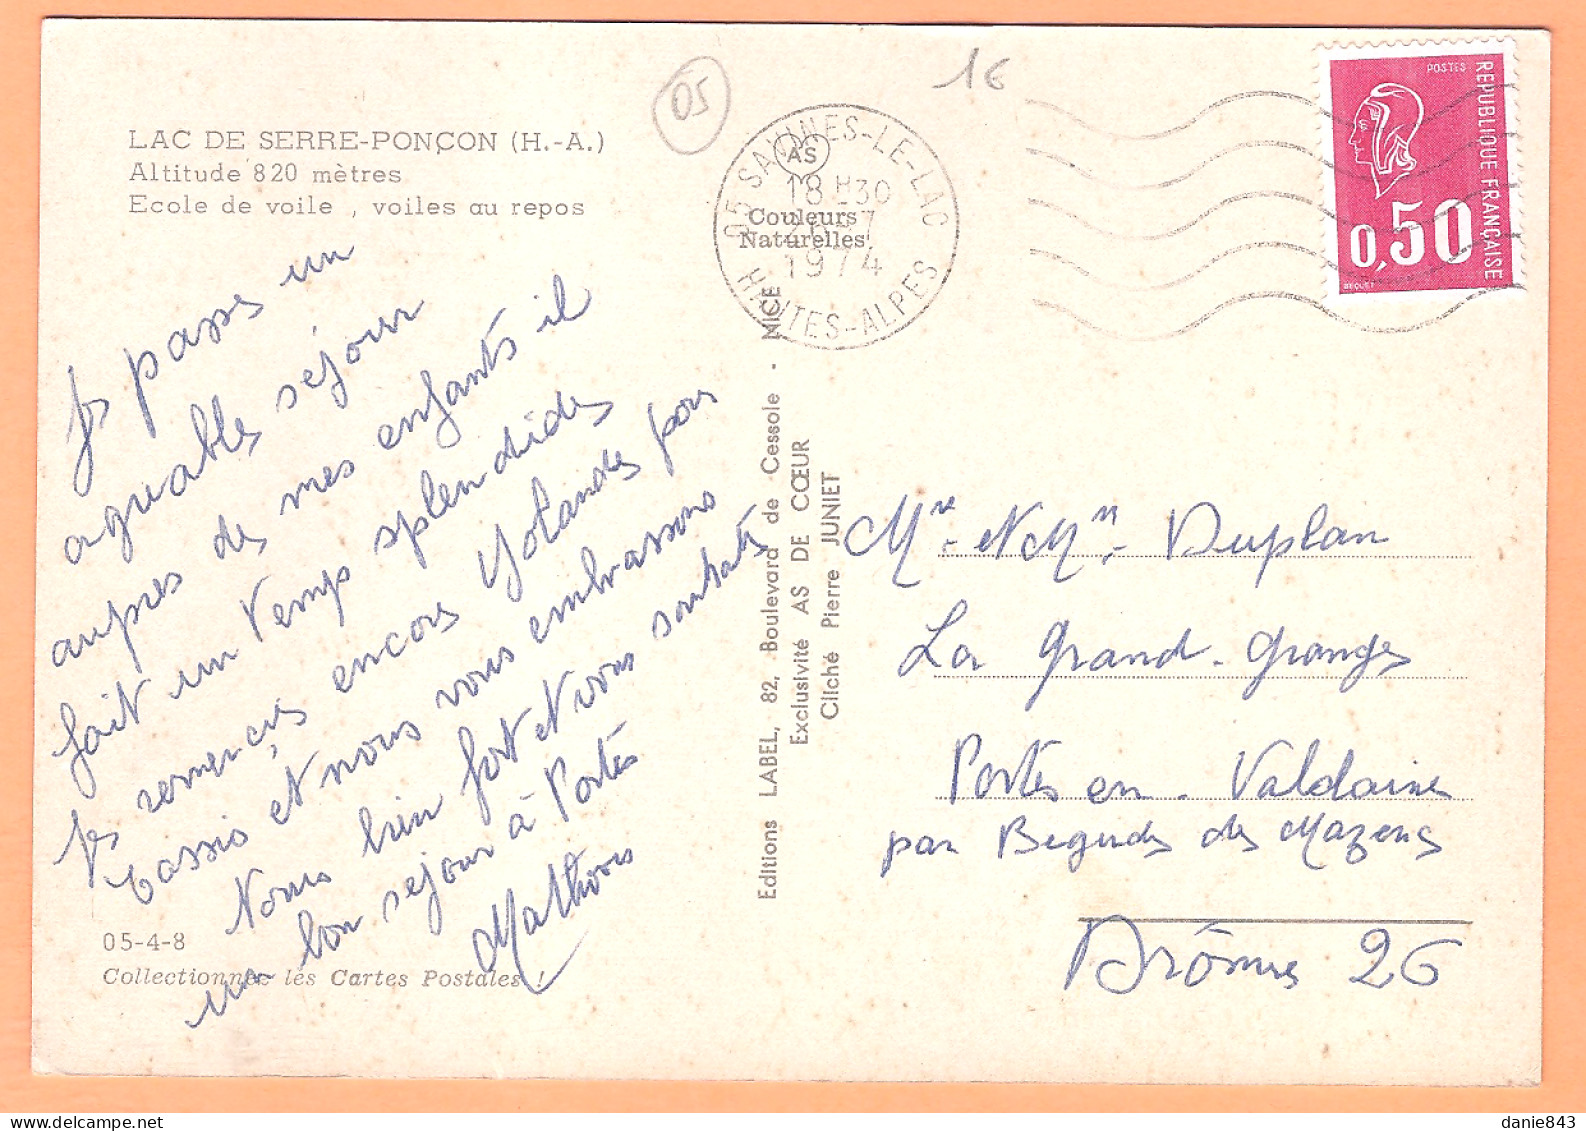 LAC DE SERRE-PONÇON (H.-A.)
Altitude 820 mètres
Ecole de voile , voiles au repos
05
1€
05 SAVINES-LE-LAC
18H30
1974
HAUTES-ALPES
AS
Couleurs
Naturelles
POSTES
REPUBLIQUE FRANÇAISE
0,50
BEQUET
Je passe un
agreable séjour
aupres de mes enfants il
fait un temps splendide
Je remercie encore Yolande pour
Cassis et nous vous embrassons
Nous bien fort et vous souhaite
un bon sejour à Portes
Mathon
05-4-8
Collectionnez les Cartes Postales !
Editions LABEL, 82, Boulevard de Cessole - NICE
Exclusivité AS DE CŒUR
Cliché Pierre JUNIET
Mre - Mm - Duplan
La Grand-Grange
Portes en - Valdaine
par Begude de Mazenc
Drôme 26
danie843